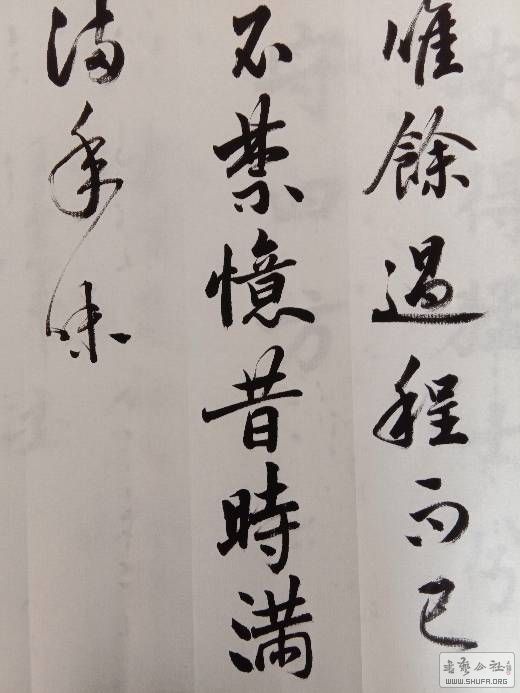 唯餘過程而已
不禁憶昔時满
满年味
書藝公社
WWW.SHUFA.ORG